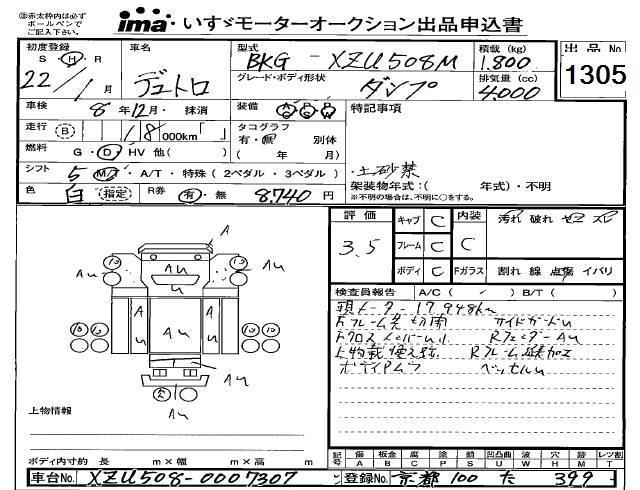 ㊟赤太枠内は必ず
ボールペンで
ご記入下さい。
ima いすゞモーターオークション出品申込書
初度登録 車名 型式 積載 (kg) 出品No
S H R デュトロ BKG - XZU508M 1,800 1305
22年 1月 グレード・ボディ形状 ダンプ 排気量 (cc) 4,000
車検 8年 12月・抹消 装備 特記事項
走行 B 18,000km「 」 タコグラフ
有・無 別体
燃料 G・D・HV 他( ) ( 年 月)
・土砂禁
シフト 5 M/T・A/T・特殊(2ペダル・3ペダル) 架装物年式:( 年式)・不明
※不明の場合は、不明に○をする。
色 白 指定 R券 有・無 8,740円
評価 キャブ C 内装 汚れ 破れ コゲ スレ
3.5 フレーム C C
ボディ C Fガラス 割れ 線 点傷 イバリ
検査員報告 A/C( ✓ ) B/T( )
現メーター 17948km
Fフレーム先切断 サイドガードU
Fクロスメンバー Rフェンダー AU
上物載使え跡 Rフレーム 加工
ボディ ベッセルU
A
AU AU AU
U
A AU A
U U
A
AU
AU
上物情報
ボディ内寸約 長 m×幅 m×高 m
記号 傷 板金 腐 塗 錆 凹凸曲 波 穴 時 レツ割
A B C P S U W H M T
車台No. XZU508-0007307 登録No. 京都 100 た 399